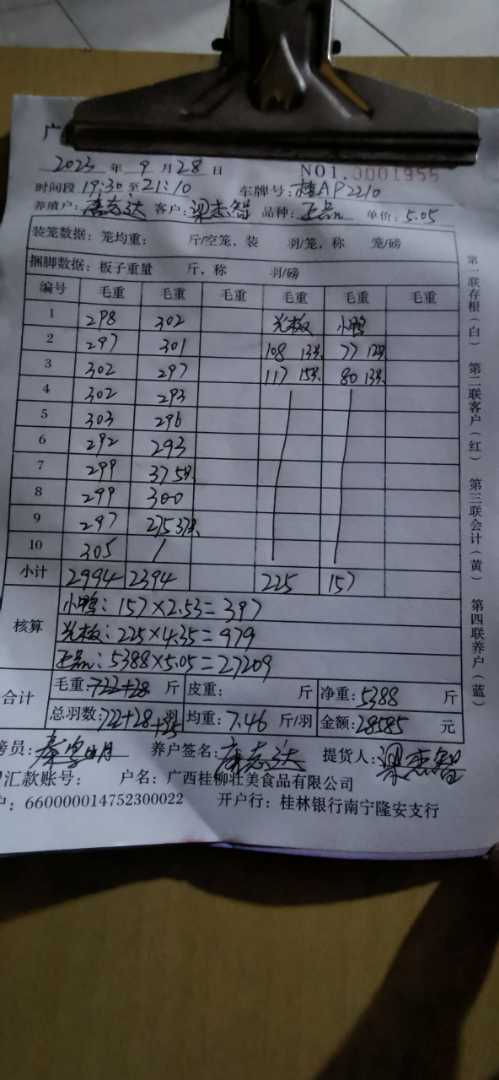 广
2023年9月28日 NO1.0001955
时间段19:30至21:10 车牌号:桂AP2210
养殖户: 客户:梁杰智 品种:正品 单价:5.05
装笼数据:笼均重: 斤/空笼,装 羽/笼,称 笼/磅
捆脚数据:板子重量 斤,称 羽/磅
编号 毛重 毛重 毛重 毛重 毛重 毛重
1 298 302 光板 小鸭
2 297 301 108 13只 77 12只
3 302 297 117 15只 80 13只
4 302 293
5 303 296
6 292 293
7 299 37 5只
8 299 300
9 297 275 37只
10 305 /
小计 2994 2394 225 157
核算
小鸭:157×2.53=397
光板:225×4.35=979
正品:5388×5.05=27209
合计
毛重:722+28斤 皮重: 斤 净重:5388斤
总羽数:722+28+25羽 均重:7.46斤/羽 金额:28585元
磅员: 养户签名: 提货人:梁杰智
汇款账号: 户名:广西桂柳壮美食品有限公司
户:660000014752300022 开户行:桂林银行南宁隆安支行
第一联存根(白) 第二联客户(红) 第三联会计(黄) 第四联养户(蓝)